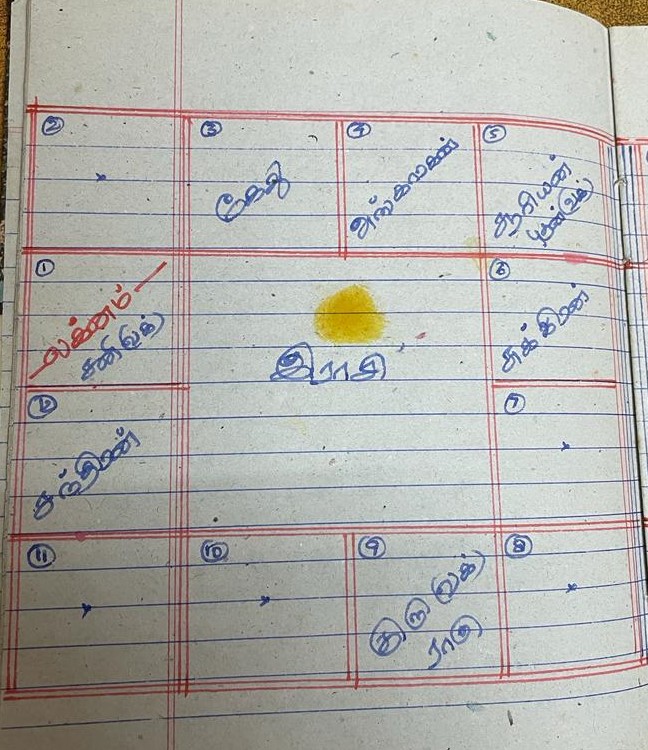 ② ③ ④ ⑤
கேது
அங்காரகன்
சூரியன்
புதன் (வக்)
① ⑥
லக்னம்
சனி (வக்)
சுக்கிரன்
இராசி
⑫ ⑦
சந்திரன்
⑪ ⑩ ⑨ ⑧
குரு (வக்)
ராகு